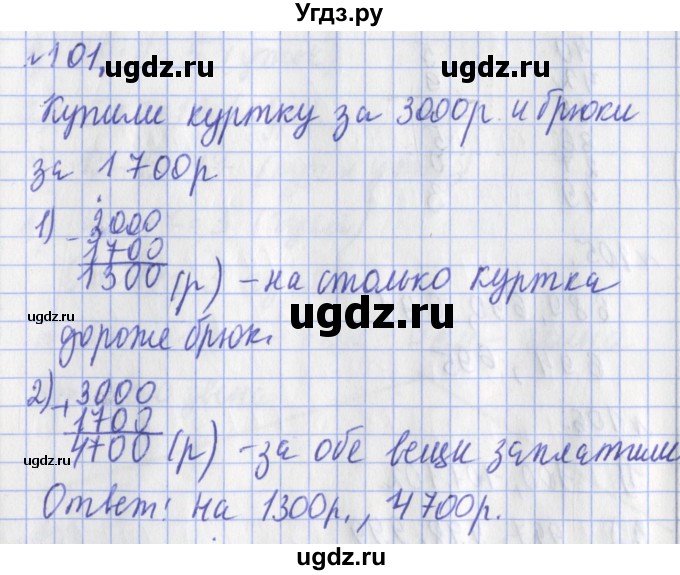 Угдз.ру
№101,
ugdz.ru ugdz.ru
Купили куртку за 3000р и брюки
за 1700р
1) - 3000
1700
1300 (р) - на столько куртка
ugdz.ru
ugdz.ru
дороже брюк.
2) + 3000
1700
4700 (р) - за обе вещи заплатили
ugdz.ru
Ответ! на 1300р., 4700р.
ugdz.ru
ugdz.ru